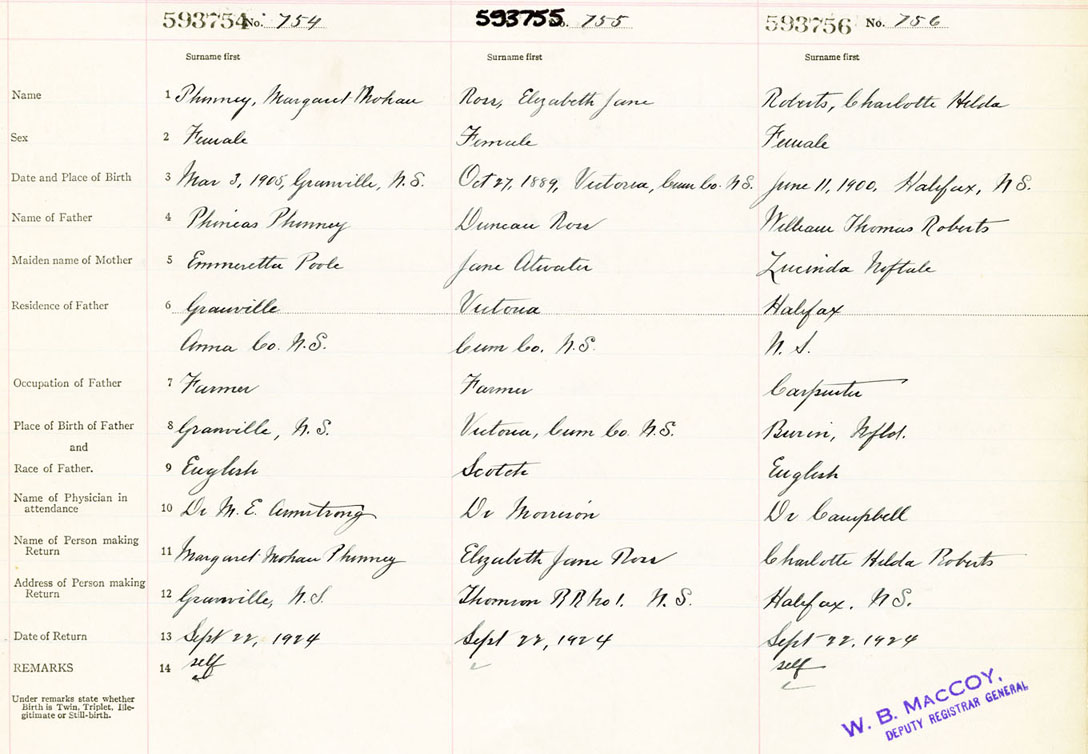 593754 No. 754 593755 No. 755 593756 No. 756
Surname first Surname first Surname first
Name 1 Phinney, Margaret Mohan Ross, Elizabeth Jane Roberts, Charlotte Hilda
Sex 2 Female Female Female
Date and Place of Birth 3 Mar 3, 1905, Granville, N.S. Oct 27, 1889, Victoria, Cum Co. N.S. June 11, 1900, Halifax, N.S.
Name of Father 4 Phineas Phinney Duncan Ross William Thomas Roberts
Maiden name of Mother 5 Emmeretta Poole Jane Atwater Lucinda Noftale
Residence of Father 6 Granville Victoria Halifax
Anna Co. N.S. Cum Co. N.S. N.S.
Occupation of Father 7 Farmer Farmer Carpenter
Place of Birth of Father 8 Granville, N.S. Victoria, Cum Co. N.S. Burin, Nfld.
and
Race of Father. 9 English Scotch English
Name of Physician in
attendance 10 Dr M. E. Armstrong Dr Morrison Dr Campbell
Name of Person making
Return 11 Margaret Mohan Phinney Elizabeth Jane Ross Charlotte Hilda Roberts
Address of Person making
Return 12 Granville, N.S. Thomson R R No 1. N.S. Halifax. N.S.
Date of Return 13 Sept 22, 1924 Sept 22, 1924 Sept 22, 1924
REMARKS 14 self self
Under remarks state whether
Birth is Twin, Triplet, Ille-
gitimate or Still-birth.
W. B. MACCOY,
DEPUTY REGISTRAR GENERAL